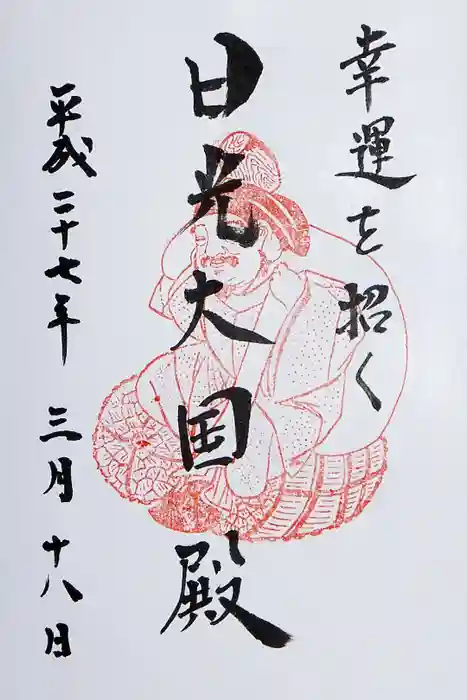 幸運を招く
日光大国殿
平成二十七年三月十八日